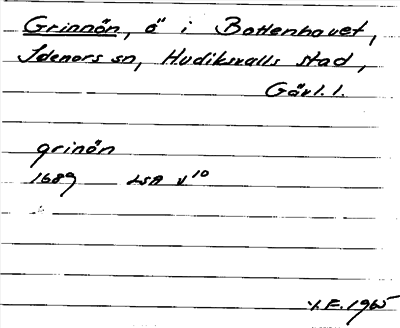 Grinnön, ö i Bottenhavet,
Idenors sn, Hudiksvalls stad,
Gävl. l.
grinön
1689 LSA V10
Y.F. 1965